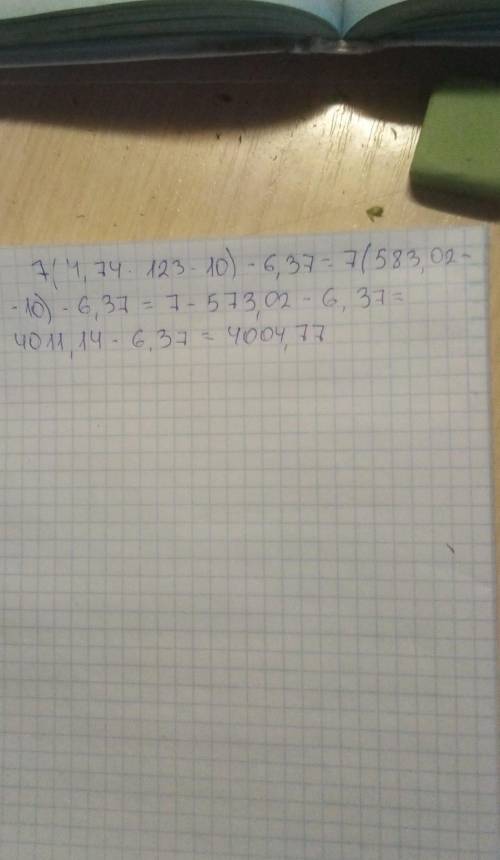 7(4,74 · 123 - 10) - 6,37 = 7(583,02 -
- 10) - 6,37 = 7 - 573,02 - 6,37 =
4011,14 - 6,37 = 4004,77